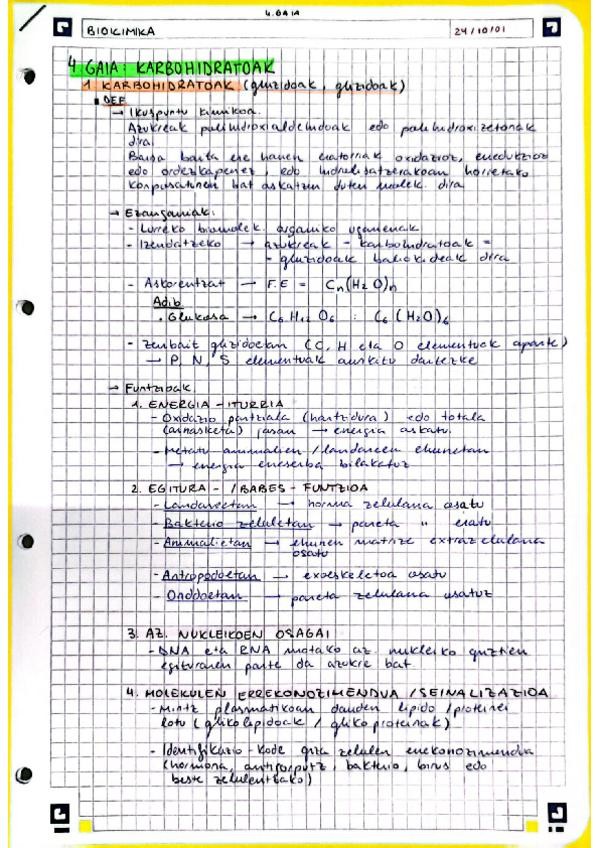 4. GAIA
BIOKIMIKA 24/10/01
4. GAIA: KARBOHIDRATOAK
1 KARBOHIDRATOAK (gluzidoak, gluzidoak)
■ DEF
→ Ikuspuntu kimikoa.
Azukreak polihidroxialdehidoak edo polihidroxizetonak
dira
Baina baita ere hauen eratorriak oxidazioz, erredukzioz
edo ordezkapenez, edo hidrolisatzerakoan horietako
konposaturen bat askatzen duten molek. dira
→ Ezaugarriak:
- Lurreko biomolek. organiko ugarienak
- Izendatzeko → azukreak - karbohidratoak =
- gluzidoak baliokideak dira
- Askorentzat → F.E = Cn(H2O)n
Adib
. Glukosa → C6H12O6 : C6(H2O)6
- Zenbait gluzidoetan (C, H eta O elementuak aparte)
→ P, N, S elementuak aurkitu daitezke
→ Funtzioak
1. ENERGIA - ITURRIA
- Oxidazio partziala (hartzidura) edo totala
(arnasketa) jasan → energia askatu.
- Metatu animalien / landareen ehunetan
→ energia erreserba bilakatuz
2. EGITURA - / BABES - FUNTZIOA
- Landareetan → horma zelularra osatu
- Bakterio zeluletan → pareta " eratu
- Animalietan → ehunen matrize extrazelularra
osatu
- Artropodoetan → exoeskeletoa osatu
- Onddoetan → pareta zelularra osatuz
3. AZ. NUKLEIKOEN OSAGAI
- DNA eta RNA motako az. nukleiko guztien
egituraren parte da azukre bat.
4. MOLEKULEN ERREKONOZIMENDUA / SEINALIZAZIOA
- Mintz plasmatikoan dauden lipido / proteinei
lotu (glikolipidoak / glikoproteinak)
- Identifikazio - kode gisa zelulen errekonozimendua
(hormona, antigorputz, bakterio, birus edo
beste zelulentzako)